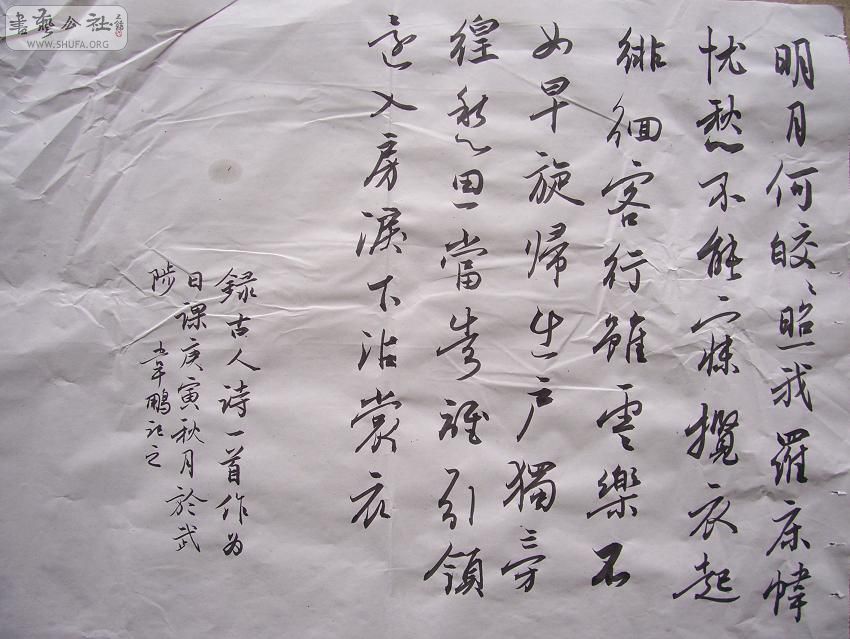 明月何皎〻照我羅床幃
忧愁不能寐攬衣起
徘徊客行雖雲樂不
如早旋帰出户獨彷
徨愁思當告誰引領
還入房淚下沾裳衣
録古人诗一首作为
日课庚寅秋月於武
陟 韋鵬记之
書藝公社
WWW.SHUFA.ORG